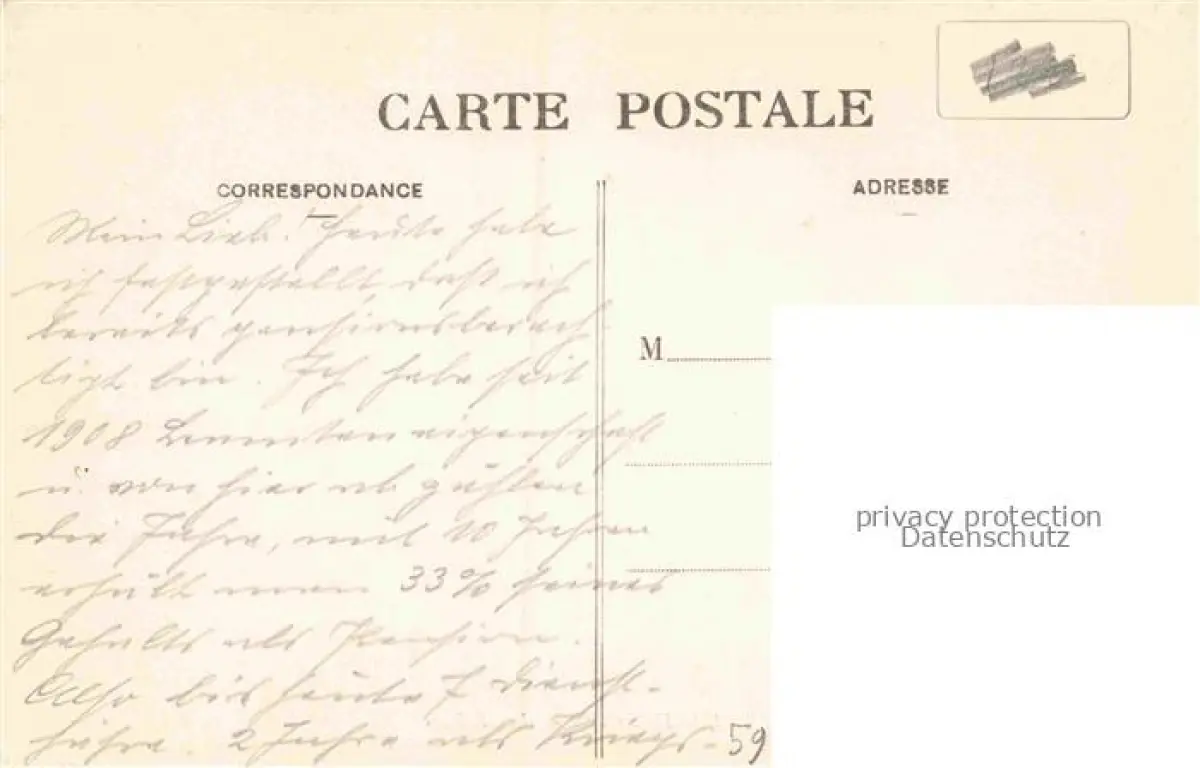 CARTE POSTALE
CORRESPONDANCE
ADRESSE
Mein Lieb! Heute habe
ich festgestellt, daß ich
bereits pensionsberech-
tigt bin. Ich habe seit
1908 Beamteneigenschaft
u. von hier ab zählen
die Jahre, mit 10 Jahren
erhält man 33% seines
Gehalts als Pension.
Also bis heute 7 Dienst-
jahre. 2 Jahre als Kriegs-
M
59
privacy protection
Datenschutz